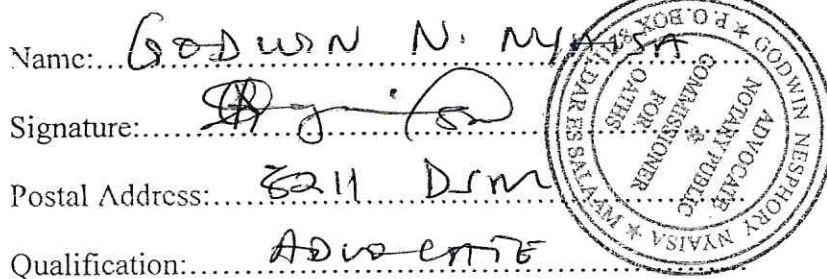 Name: GODWIN N. NYAISA
Signature:
Postal Address: 8211 DSM
Qualification: ADVOCATE
GODWIN NESPHORY NYAISA ★ DAR ES SALAAM ★ P.O. BOX
ADVOCATE
NOTARY PUBLIC
COMMISSIONER
FOR
OATHS